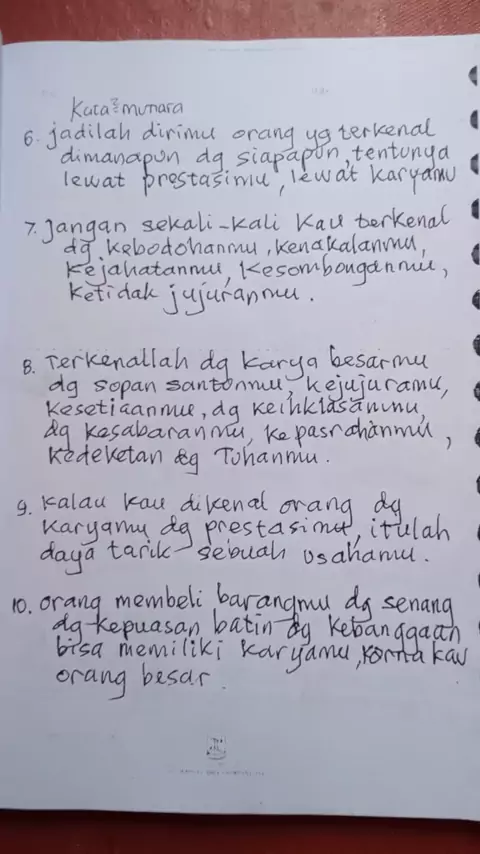 Kata² mutiara
6. jadilah dirimu orang yg terkenal
dimanapun dg siapapun, tentunya
lewat prestasimu, lewat karyamu
7. jangan sekali-kali kau terkenal
dg kebodohanmu, kenakalanmu,
kejahatanmu, kesombonganmu,
ketidak jujuranmu.
8. Terkenallah dg karya besarmu
dg sopan santonmu, kejujuramu,
kesetiaanmu, dg keihklasanmu,
dg kesabaranmu, kepasrahanmu,
kedeketan dg Tuhanmu.
9. kalau kau dikenal orang dg
karyamu dg prestasimu, itulah
daya tarik sebuah usahamu.
10. orang membeli barangmu dg senang
dg kepuasan batin dg kebanggaan
bisa memiliki karyamu, korna kau
orang besar.